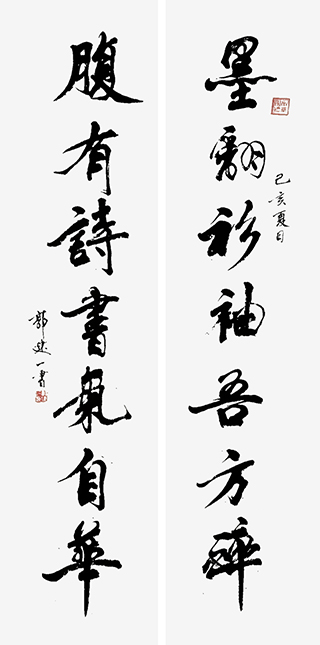 墨翻衫袖吾方醉
己亥夏日
腹有詩書氣自華
一書